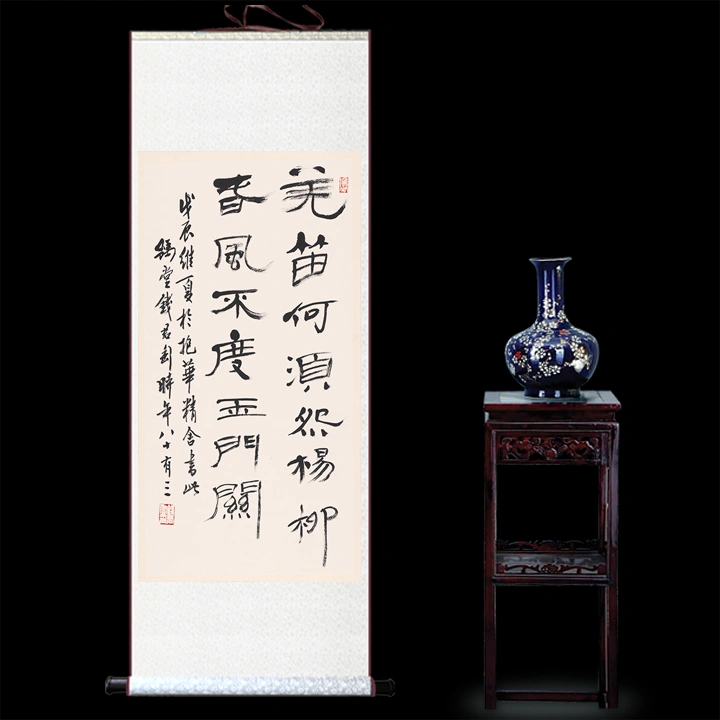 羌笛何須怨楊柳
春風不度玉門關
戊辰維夏於抱華精舍書此
豫堂錢君匋時年八十有三